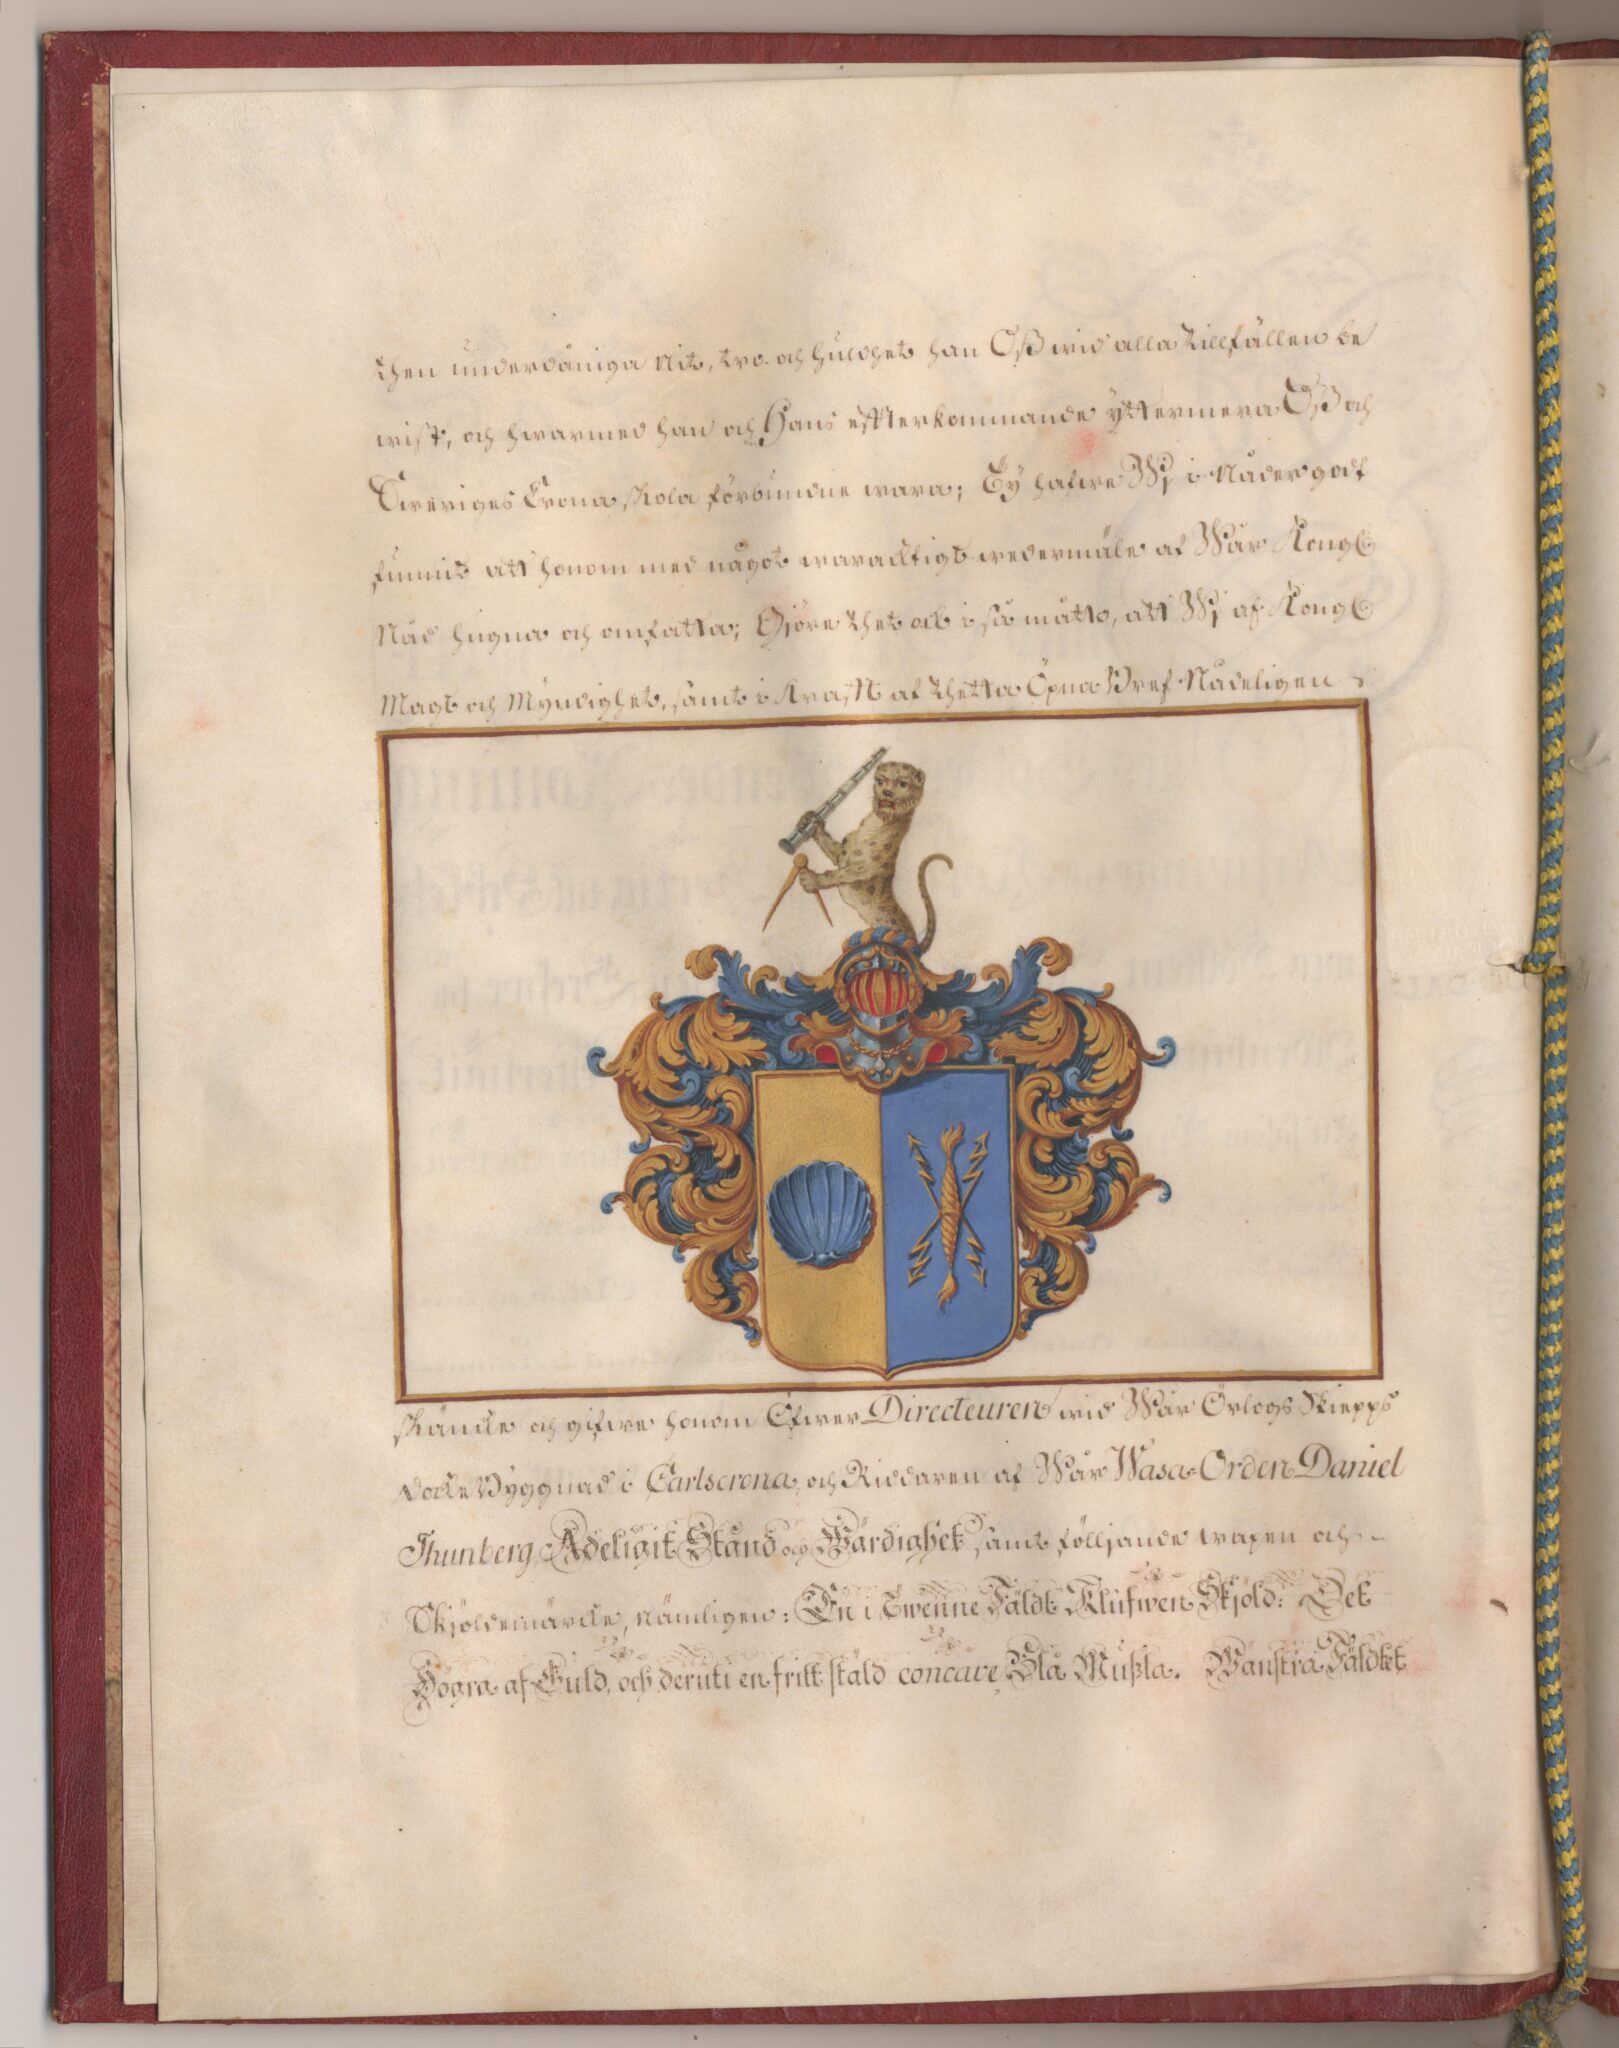 then underdåniga nit, tro och huldhet han Oß wid alla tillfällen be
wist, och hwarmed han och Hans efterkommande yttermera Oß och
Sweriges Crona skola förbundne wara; Ty hafwe Wj i Nåder godt
funnit att honom med något waracktigt wedermäle af Wår Kongl.
Nåd hugna och omfatta; Gjöre thet ock i så måtto, att Wj af Kongl.
Magt och Myndighet, samt i Kraft af thetta Öpna Bref Nådeligen
skäncke och gifwe honom Öfwer Directeuren wid Wår Örlogs Skiepps
docke Byggnad i Carlscrona och Riddaren af Wår Wasa-Orden Daniel
Thunberg Adeligit Stånd och Wärdighet samt följjande wapen och
Skjöldemärcke, nämligen: En i Twenne Fäldt Klufwen Skjöld: Det
Högra af Guld, och deruti en fritt stäld concave Blå Mußla. Wänstra Fäldtet